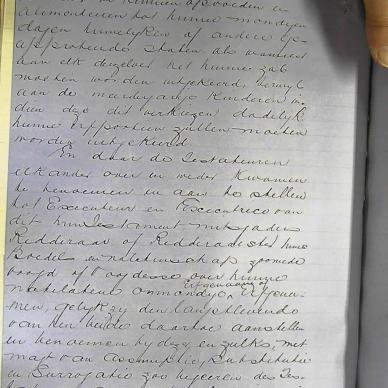 te kunnen opvoeden en
alimenteren tot hunne mondige
dagen huwelyken of andere ge-
approbeerde staten als wanneer
aan elk derzelver het hunne zal
moeten worden uitgekeerd, terwyl
aan de meerderjarige kinderen in-
dien deze dit verkiezen dadelyk
hunne erfportien zullen moeten
worden uitgekeerd.
En daar de Testateuren
elkander over en weder kwamen
te benoemen en aan te stellen
tot Executeur en Executrice van
dit hun Testament mitsgaders
Redderaar of Redderaarster hunne
Boedel en nalatenschap zoomede
voogd of voogdesse over hunne
na te laten onmondige Erfgena-
men, gelyk zy den langstlevende
van hen beiden daartoe aanstellen
en benoemen by deze en zulks, met
magt van assumptie, substitutie
en surrogatie zoo begeeren de Tes-